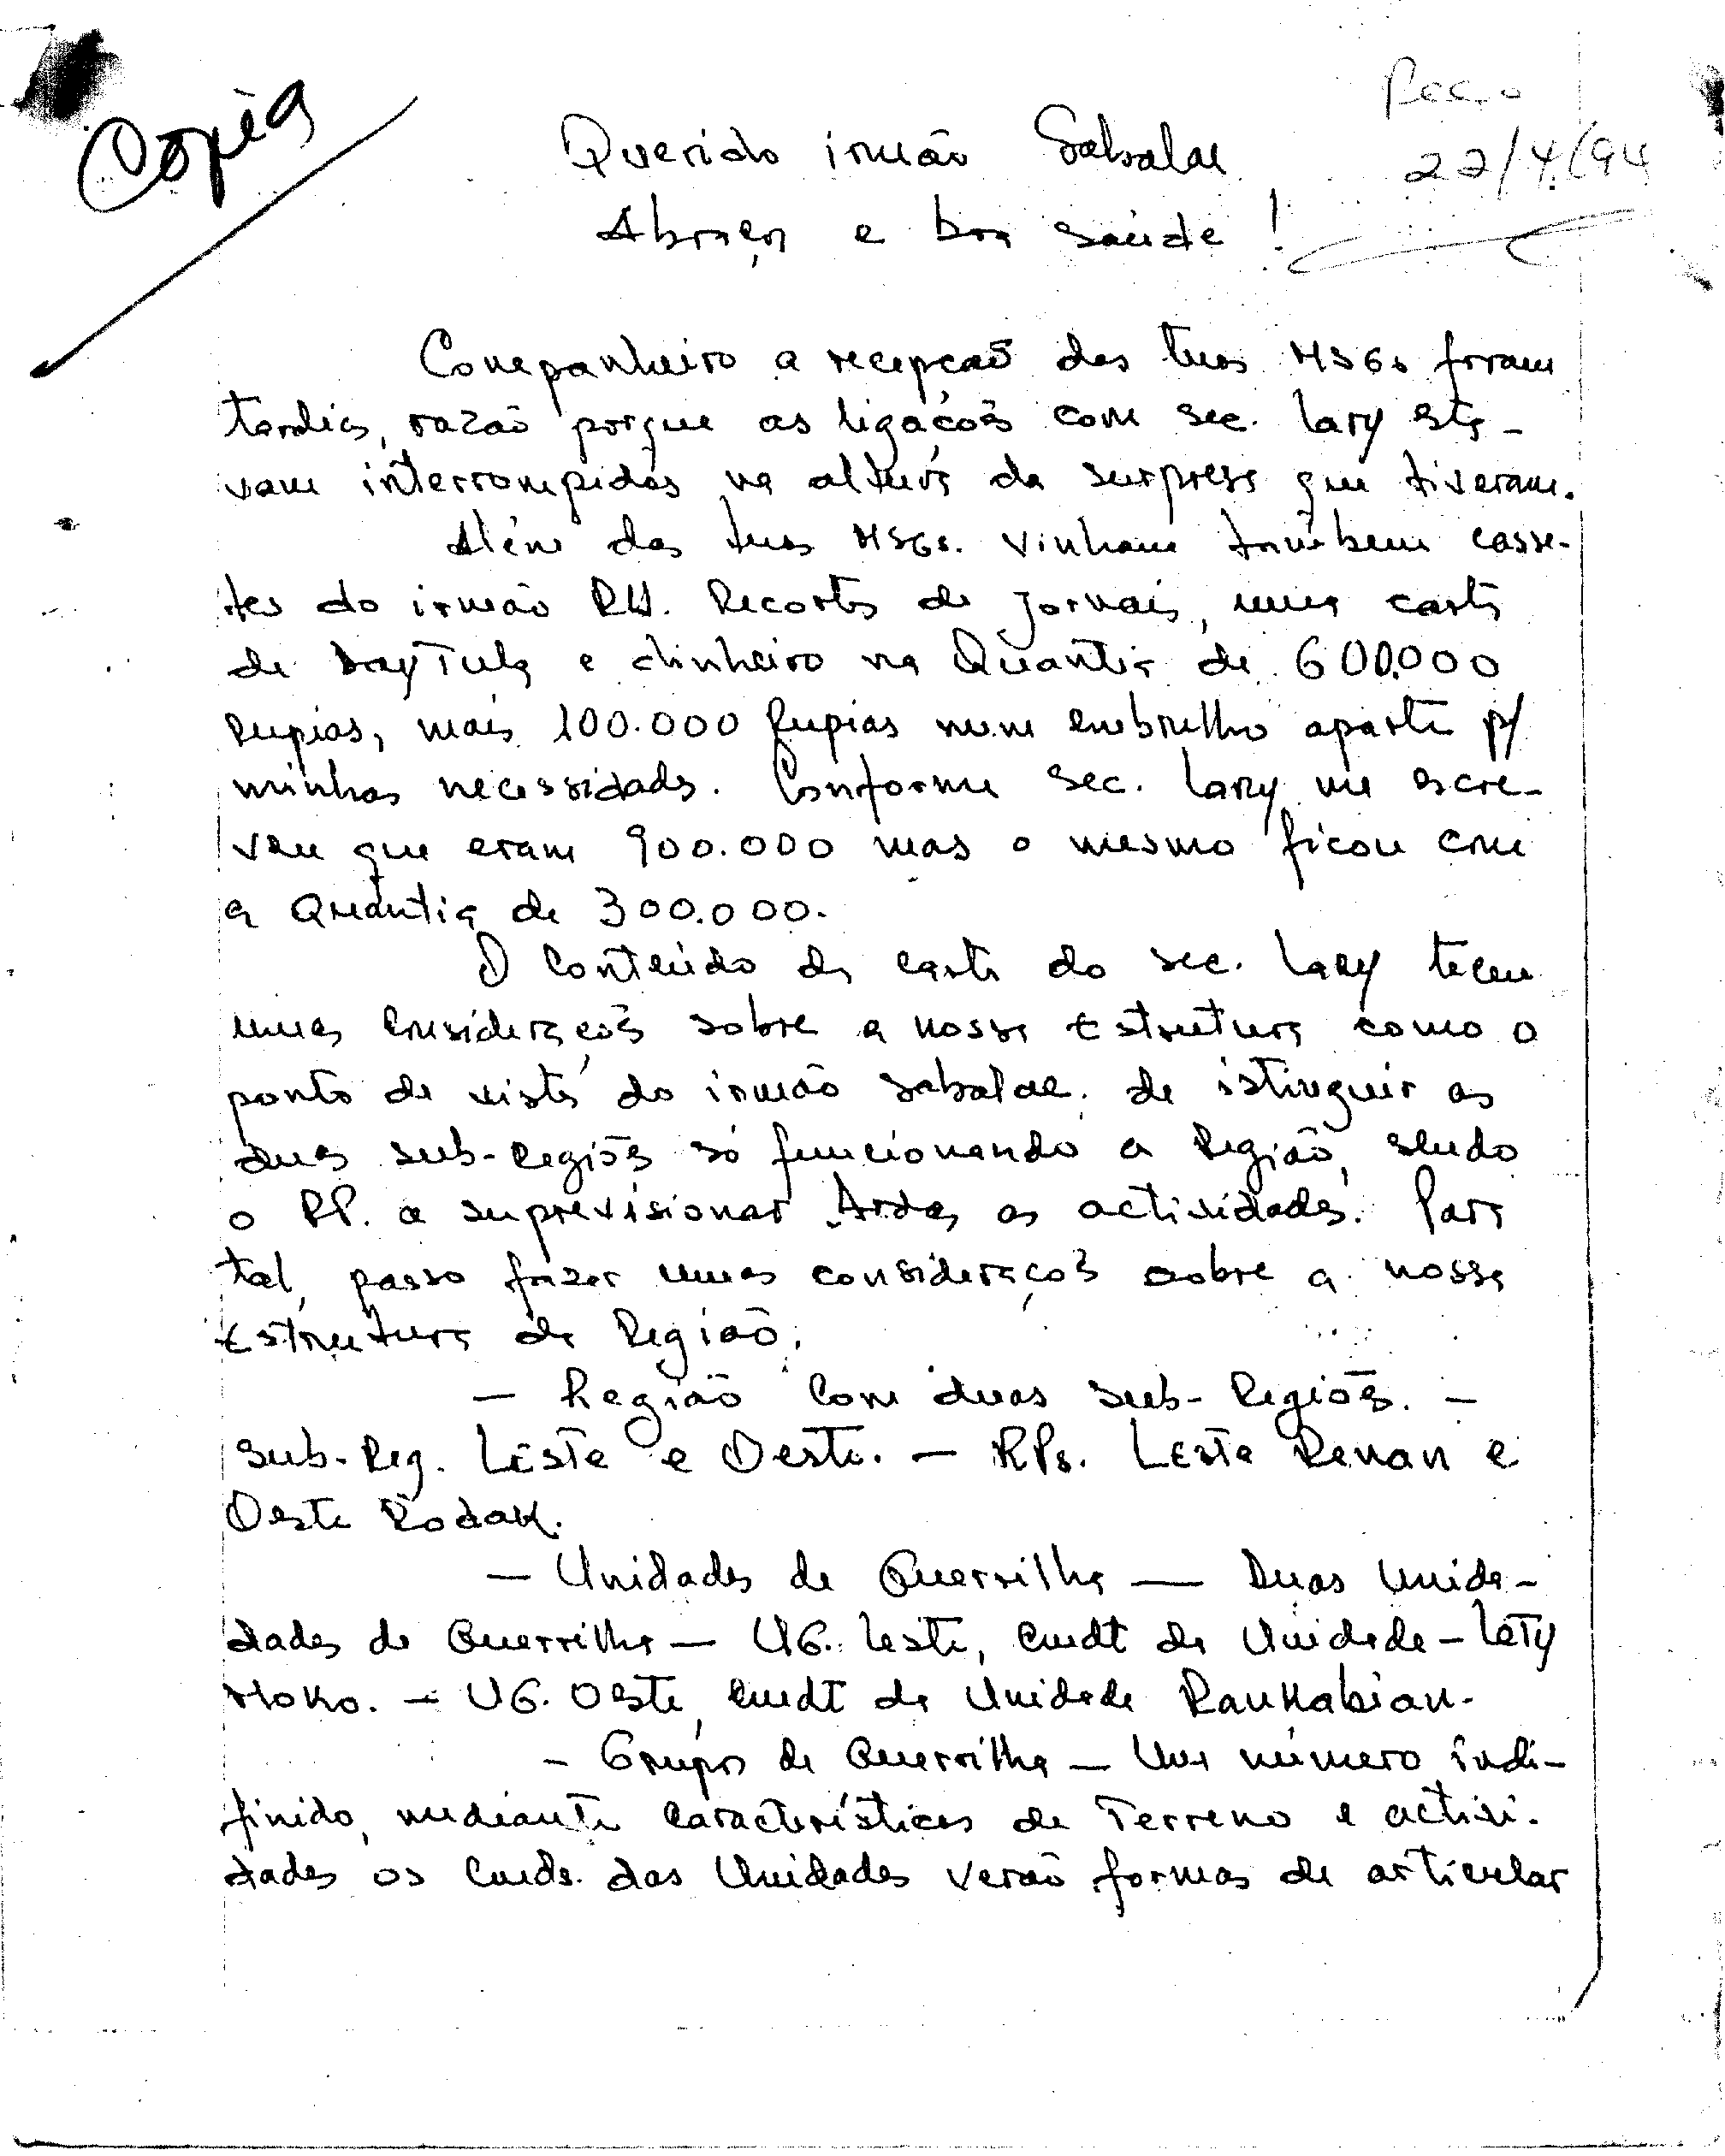 Cópia
Rec.o
22/4/94
Querido irmão Sabalae
Abraço e boa saúde!
Companheiro a recepção das tuas MSGs foram
tardia, razão porque as ligações com sec. Lary esta-
vam interrompidas na altura da surpresa que tiveram.
Além das tuas MSGs. vinham também casse-
tes do irmão RH. Recortes de jornais, uma carta
de DayTula e dinheiro na Quantia de 600.000
Rupias, mais 100.000 Rupias num embrulho aparte p/
minhas necessidades. Conforme sec. Lary me escre-
veu que eram 900.000 mas o mesmo ficou com
a Quantia de 300.000.
O Conteúdo da carta do sec. Lary teceu
umas considerações sobre a nossa Estrutura como o
ponto de vista do irmão Sabalae. de istinguir as
duas sub-regiões só funcionando a Região, sendo
o RP. a suprevisionar todas as actividades. Para
tal, passo fazer umas considerações sobre a nossa
Estrutura da Região.
- Região Com duas Sub-Regiões. -
Sub-Reg. Leste e Oeste. - RPs. Leste Renan e
Oeste Rodak.
- Unidades de Guerrilha - Duas Unida-
dades de Guerrilha - UG. Leste, Cmdt da Unidade - Laty
Moko. - UG. Oeste, Cmdt da Unidade Rankabian.
- Grupos de Guerrilha - Um número indi-
finido, mediante características de Terreno e activi-
dades os Cmds. das Unidades verão formas de articular